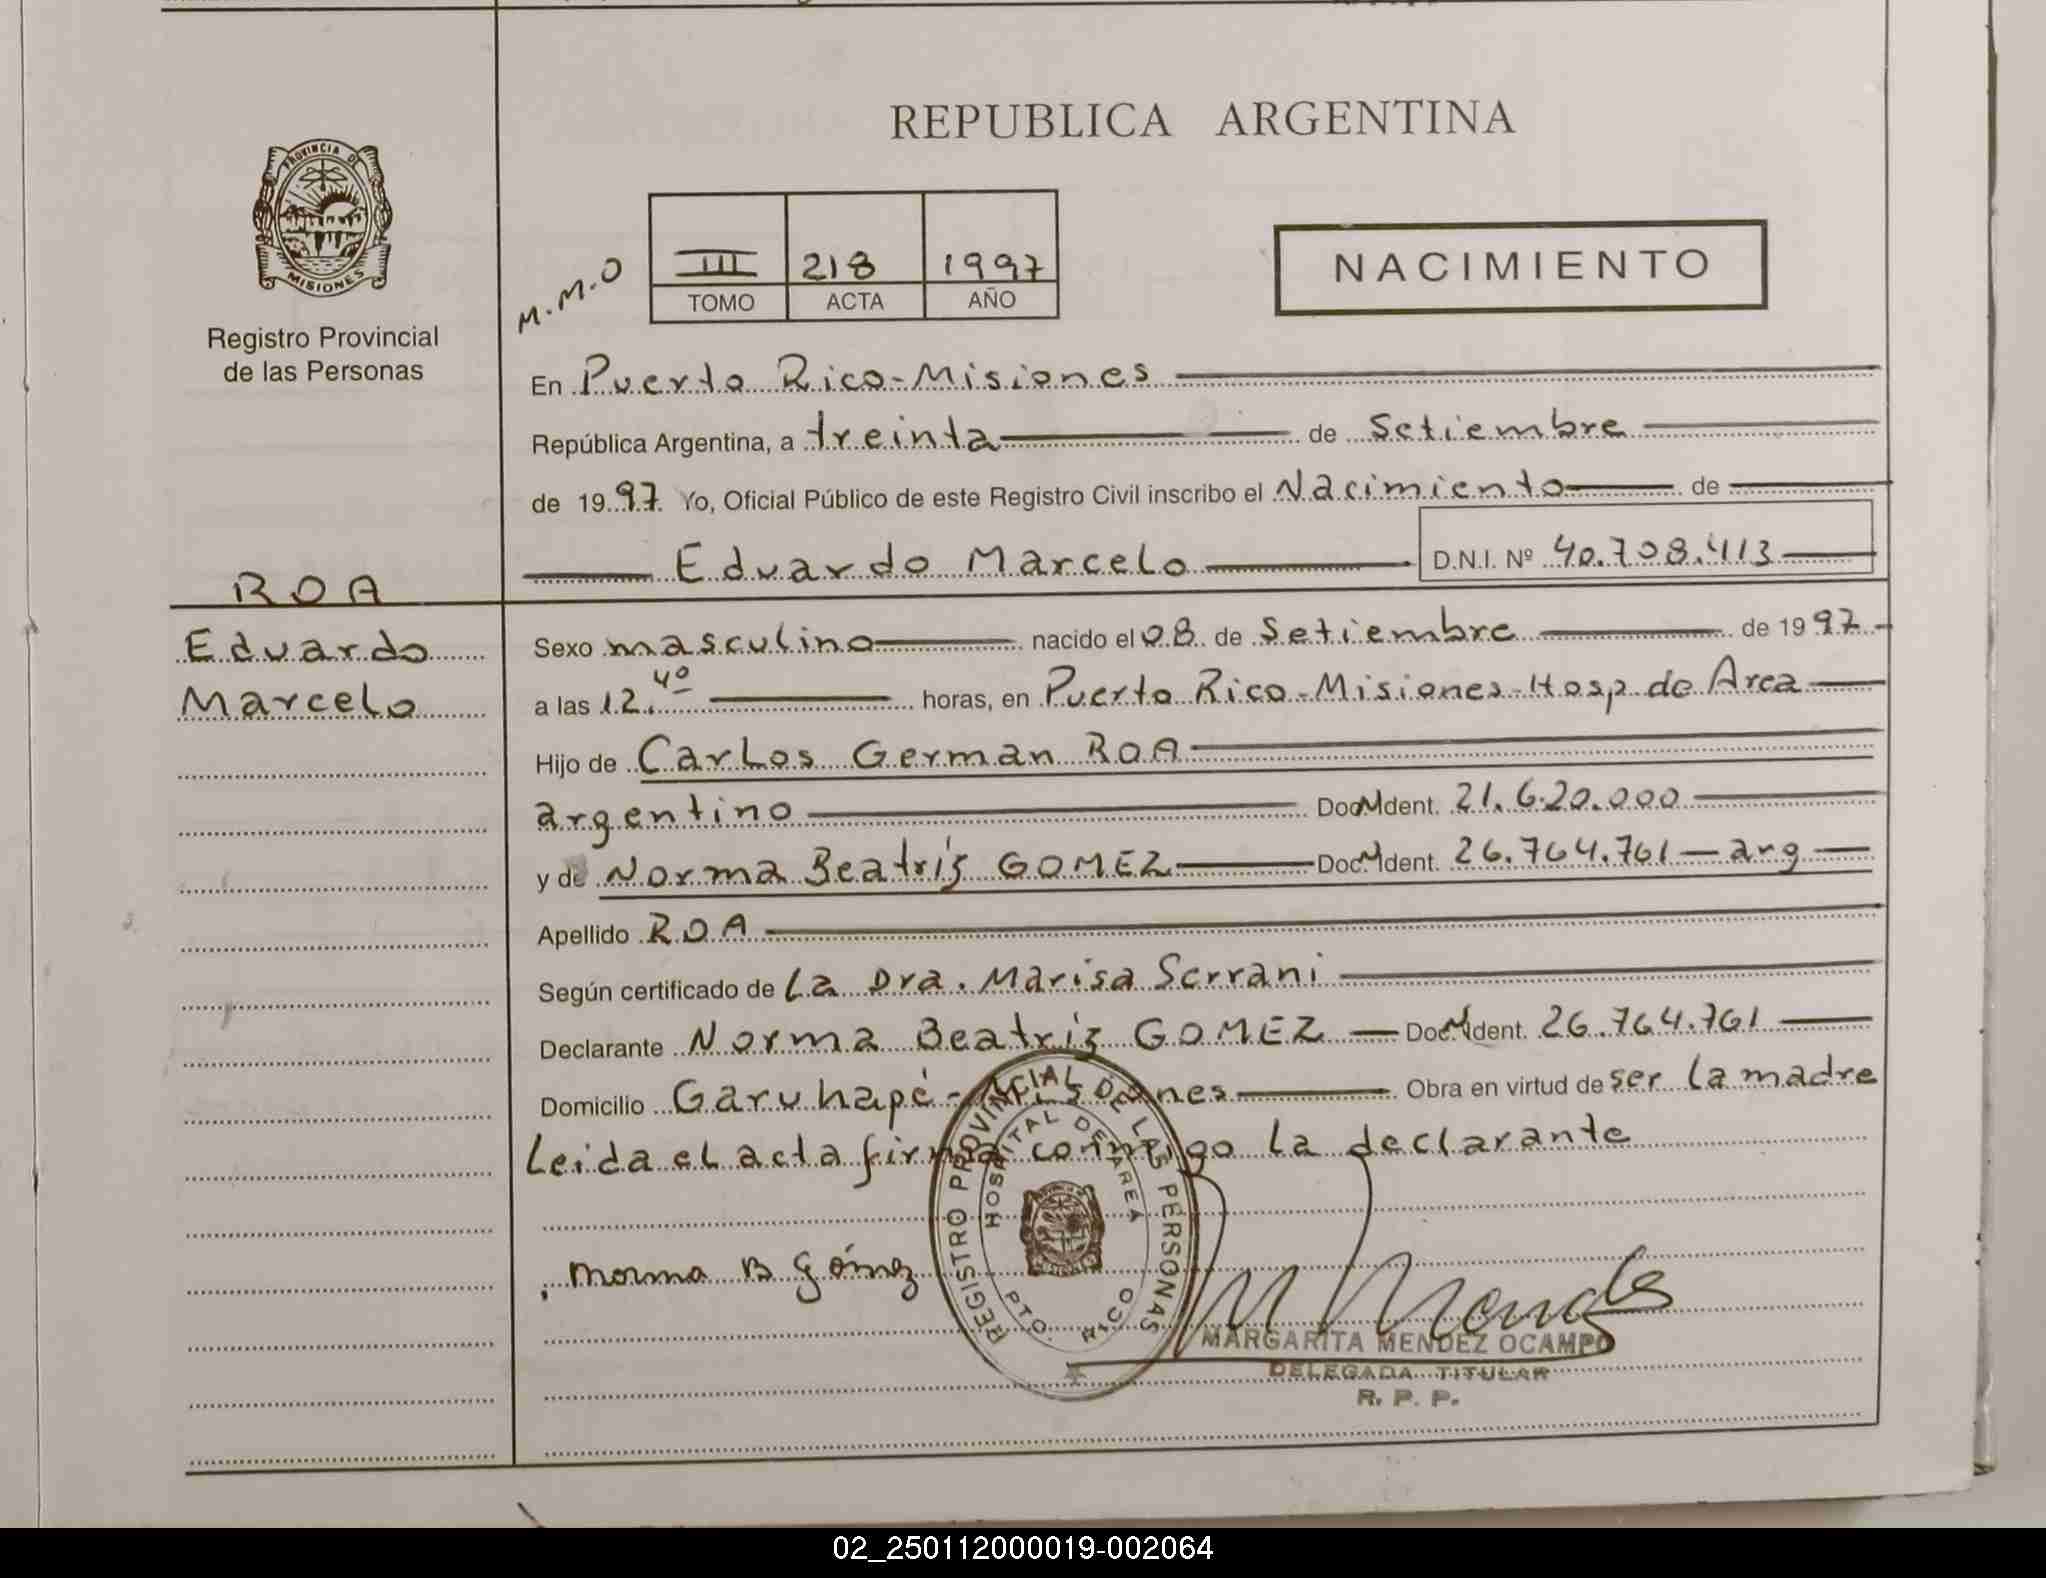 REPUBLICA ARGENTINA
PROVINCIA DE
MISIONES
Registro Provincial
de las Personas
M.M.O
III 218 1997
TOMO ACTA AÑO
NACIMIENTO
En Puerto Rico-Misiones
República Argentina, a treinta de Setiembre
de 1997 Yo, Oficial Público de este Registro Civil inscribo el Nacimiento de
Eduardo Marcelo D.N.I. Nº 40.708.413
ROA
Eduardo
Marcelo
Sexo masculino nacido el 08 de Setiembre de 1997
a las 12.40 horas, en Puerto Rico-Misiones-Hosp de Area
Hijo de Carlos German ROA
argentino Doc. Ident. 21.620.000
y de Norma Beatríz GOMEZ Doc. Ident. 26.764.761 - arg
Apellido ROA
Según certificado de La Dra. Marisa Serrani
Declarante Norma Beatríz GOMEZ Doc. Ident. 26.764.761
Domicilio Garuhapé-Misiones Obra en virtud de ser la madre
Leida el acta firma conmigo la declarante
Norma B Gómez
REGISTRO PROVINCIAL DE LAS PERSONAS
HOSPITAL DE AREA
PTO. RICO
MARGARITA MENDEZ OCAMPO
DELEGADA TITULAR
R. P. P.
02_250112000019-002064